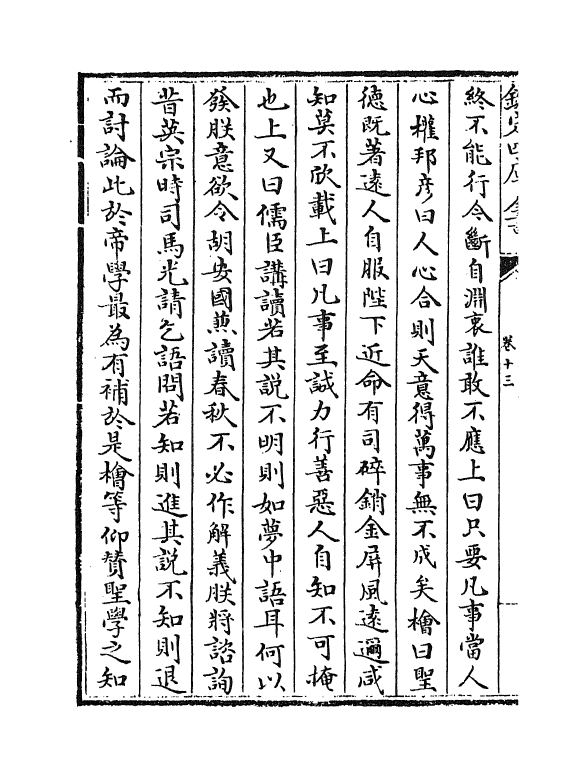 欽定四庫全書
卷十三
終不能行今斷自淵衷誰敢不應上曰只要凡事當人
心權邦彦曰人心合則天意得萬事無不成矣檜曰聖
徳既著逺人自服陛下近命有司碎銷金屏風逺邇咸
知莫不欣載上曰凡事至誠力行善惡人自知不可掩
也上又曰儒臣講讀若其説不明則如夢中語耳何以
發朕意欲令胡安國兼讀春秋不必作解義朕將諮詢
昔英宗時司馬光請乞語問若知則進其説不知則退
而討論此於帝學最為有補於是檜等仰賛聖學之知